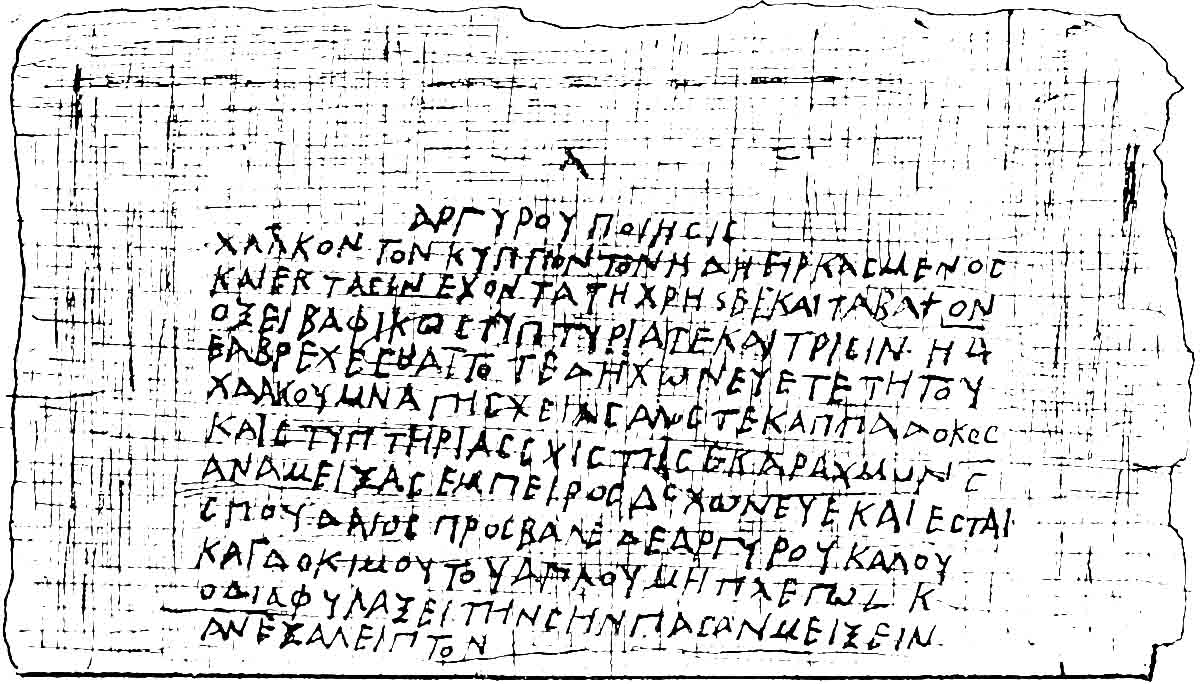 Α
ΑΡΓΥΡΟΥ ΠΟΙΗϹΙϹ
ΧΑΛΚΟΝ ΤΟΝ ΚΥΠΡΙΟΝ ΤΟΝ ΗΔΗ ΕΙΡΚΑϹΜΕΝΟϹ
ΚΑΙ ΕΚΤΑϹΙΝ ΕΧΟΝΤΑ ΤΗ ΧΡΗ ΚΑΙ
ΟΞΕΙ ΒΑΦΙΚΩ ϹΤΙΠΤΥΡΙΑ ΤΕ ΚΑΙ ΤΡΙϹΙΝ Η
ΕΑ ΒΡΕΧΕ ΤΟΤΕ ΔΗ ΧΩΝΕΥΕΤΕ ΤΗ ΤΟΥ
ΧΑΛΚΟΥ ΜΝΑ ΓΗϹ ΧΕΙΑϹ ΑΛΟϹ ΤΕ ΚΑΠΠΑΔΟΚΟϹ
ΚΑΙ ϹΤΥΠΤΗΡΙΑϹ ϹΧΙϹΤΗϹ ΔΡΑΧΜΩΝ Ϲ
ΑΝΑΜΕΙΞΑϹ ΕΜΠΕΙΡΟϹ ΧΩΝΕΥΕ ΚΑΙ ΕϹΤΑΙ
ϹΠΟΥΔΑΙΟϹ ΠΡΟϹΒΑΛΕ ΔΕ ΑΡΓΥΡΟΥ ΚΑΛΟΥ
ΚΑΙ ΔΟΚΙΜΟΥ ΤΟΥ ΑΠΛΟΥ ΜΗ ΠΛΕΠΩ Κ
Ο ΔΙΑΦΥΛΑΞΕΙ ΤΗΝ ϹΗΝ ΠΑϹΑΝ ΜΕΙΞΕΙΝ
ΑΝΕΞΑΛΕΙΠΤΟΝ